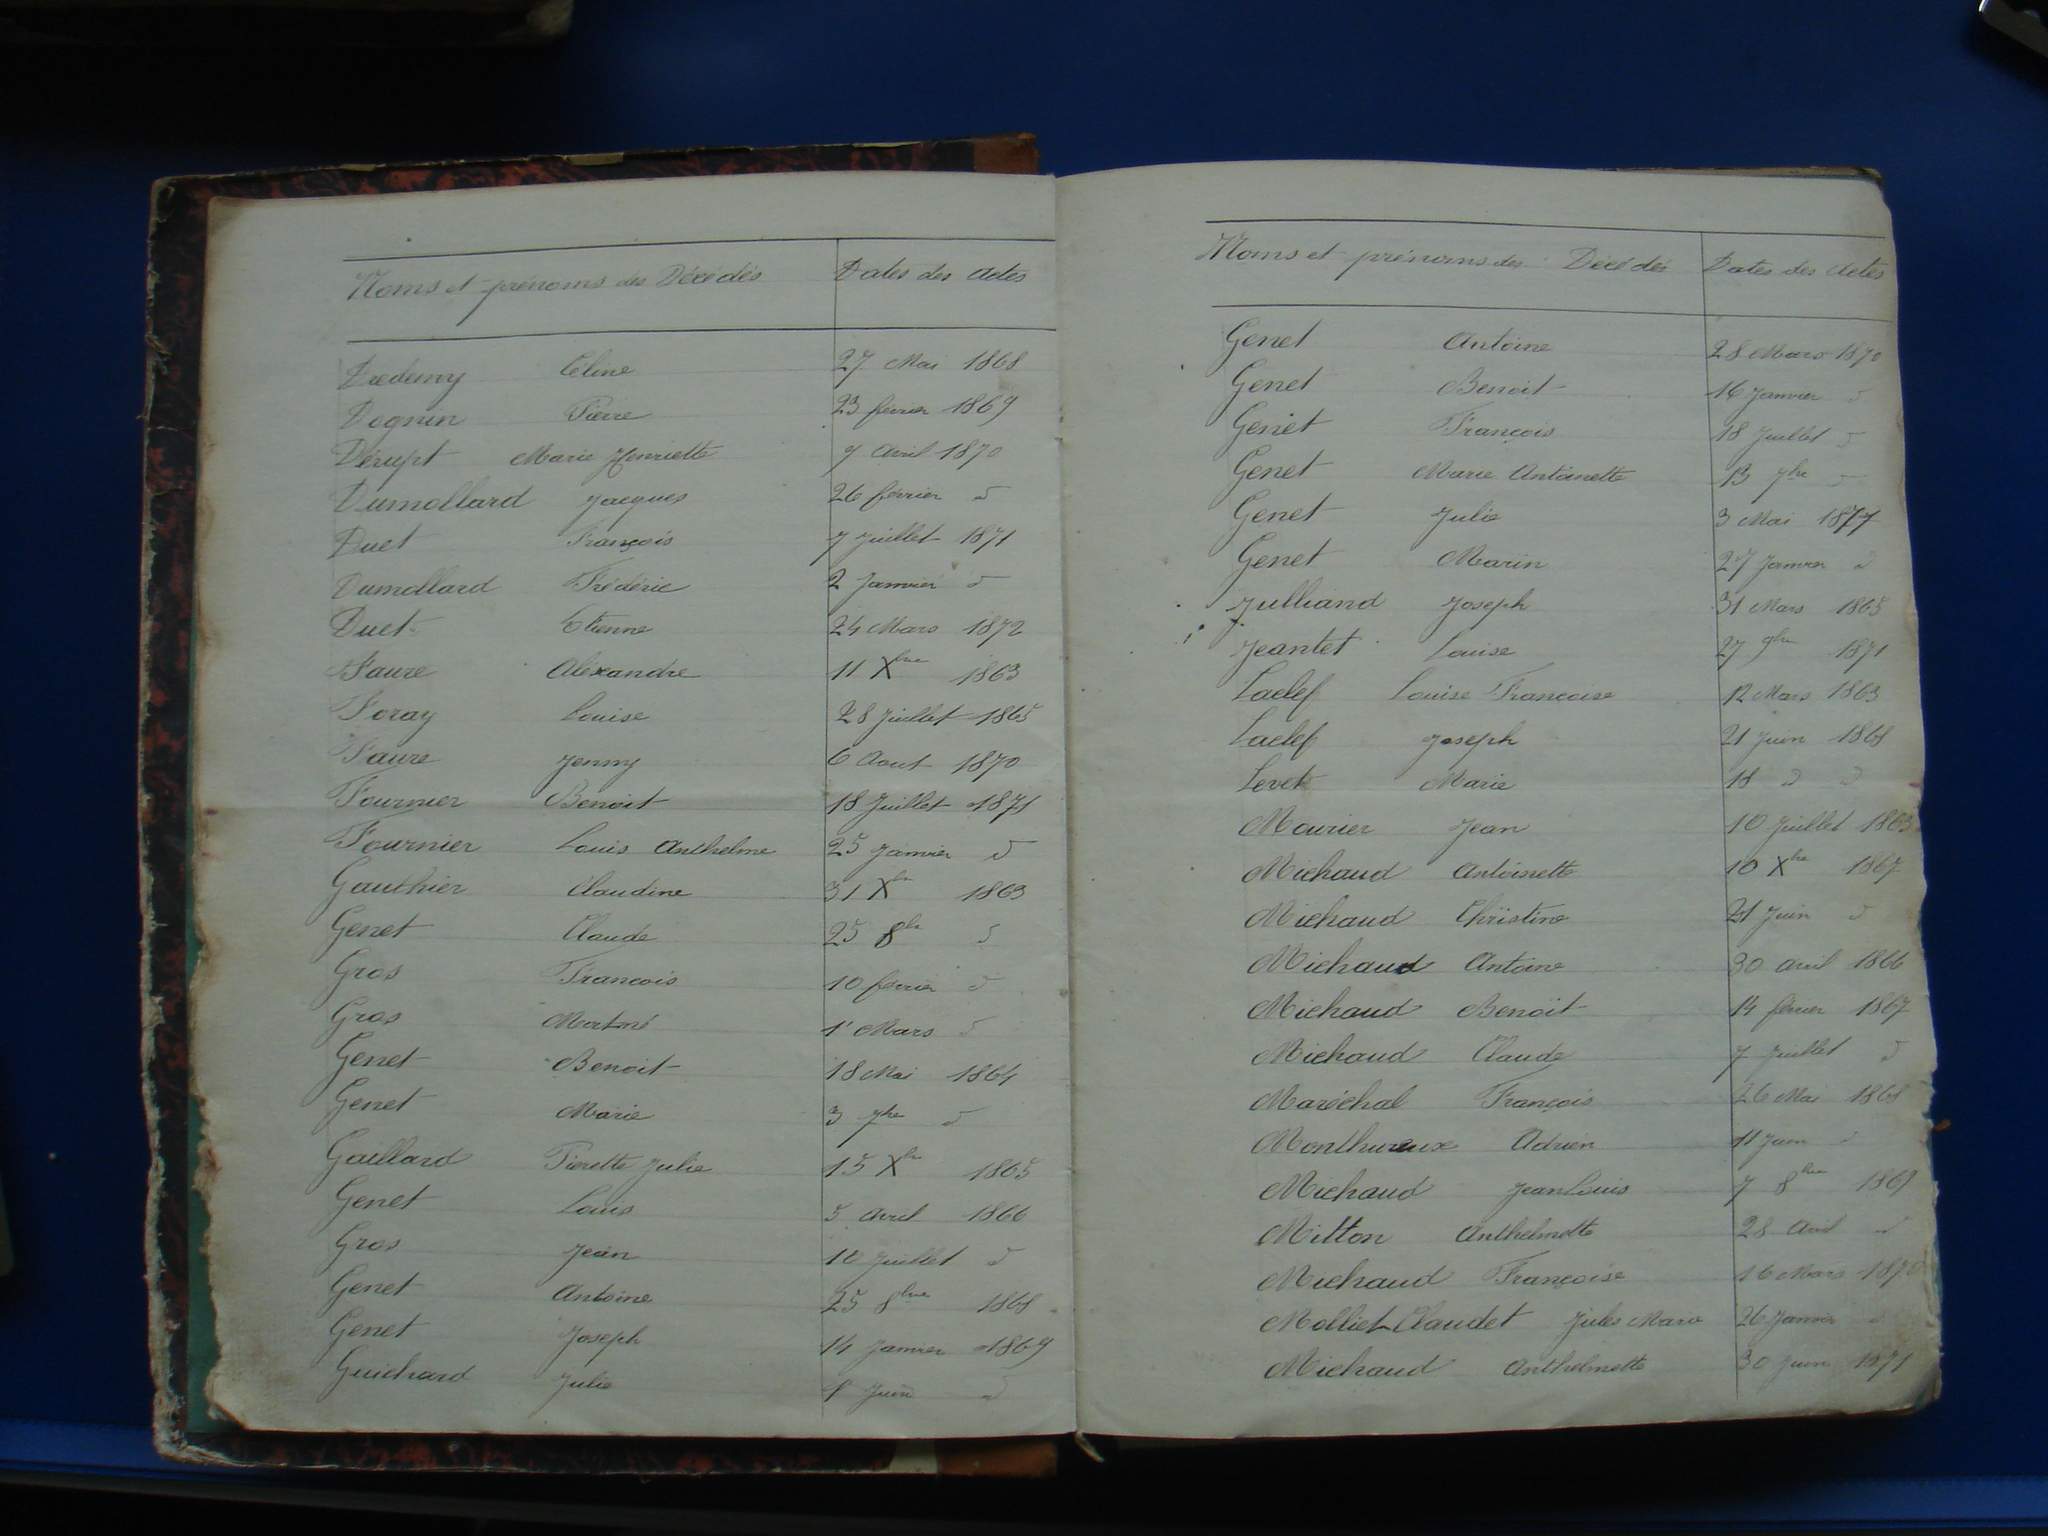 Noms et prénoms des Décédés Dates des Actes
Céline 27 Mai 1868
Dognin Pierre 23 février 1869
Dérupt Marie Henriette 7 Avril 1870
Dumollard Jacques 26 février d
Duet François 7 Juillet 1871
Dumollard Frédéric 2 Janvier d
Duet Etienne 24 Mars 1872
Faure Alexandre 11 Xbre 1863
Foray Louise 28 Juillet 1865
Faure Jenny 6 Aout 1870
Fournier Benoit 18 Juillet 1871
Fournier Louis Anthelme 25 Janvier d
Gauthier Claudine 31 Xbre 1863
Genet Claude 25 8bre d
Gros François 10 février d
Gros 1er Mars d
Genet Benoit 18 Mai 1864
Genet Marie 3 7bre d
Gaillard Pierette Julie 15 Xbre 1865
Genet Louis 5 Avril 1866
Gros Jean 10 Juillet d
Genet Antoine 25 8bre 1868
Genet Joseph 14 Janvier 1869
Guichard Julie Juin d
Noms et prénoms des Décédés Dates des Actes
Genet Antoine 28 Mars 1870
Genet Benoit 16 Janvier d
Genet François 18 Juillet d
Genet Marie Antoinette 13 7bre d
Genet Julie 3 Mai 1877
Genet Marin 27 Janvier d
Julliand Joseph 31 Mars 1865
Jeantet Louise 27 9bre 1871
Laclef Louise Francoise 12 Mars 1863
Laclef Joseph 21 Juin 1868
Levet Marie 18 d d
Mourier Jean 10 Juillet 1863
Michaud Antoinette 10 Xbre 1867
Michaud Christine 21 Juin d
Michaud Antoine 30 Avril 1866
Michaud Benoit 14 février 1867
Michaud Claude 7 Juillet d
Maréchal François 26 Mai 1868
Monthureux Adrien 11 Juin d
Michaud Jean Louis 7 8bre 1869
Mitton Anthelmette 28 Avril d
Michaud Françoise 16 Mars 1870
Molliet Claudet Jules Marie 26 Janvier d
Michaud Anthelmette 30 Juin 1871